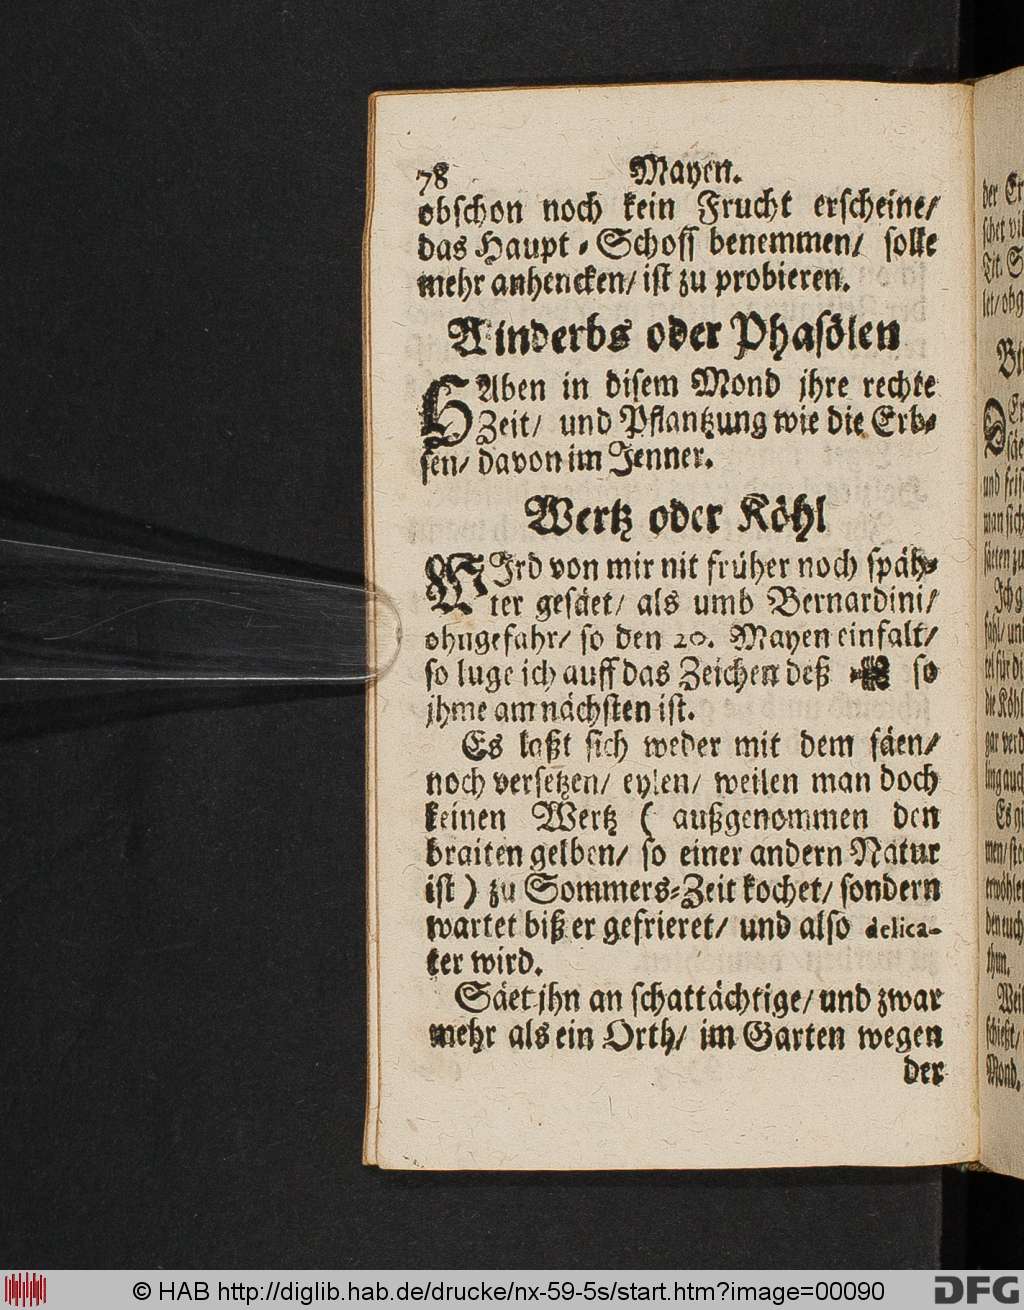 78 Mayen.
obschon noch kein Frucht erscheine/
das Haupt-Schoss benemmen/ solle
mehr anhencken/ ist zu probieren.
Ainderbs oder Phasölen
HAben in disem Mond jhre rechte
Zeit/ und Pflantzung wie die Erb-
sen/ davon im Jenner.
Wertz oder Köhl
WIrd von mir nit früher noch späh-
ter gesäet/ als umb Bernardini/
ohngefahr/ so den 20. Mayen einfalt/
so luge ich auff das Zeichen deß so
jhme am nächsten ist.
Es laßt sich weder mit dem säen/
noch versetzen/ eylen/ weilen man doch
keinen Wertz ( außgenommen den
braiten gelben/ so einer andern Natur
ist ) zu Sommers-Zeit kochet/ sondern
wartet biß er gefrieret/ und also delica-
ter wird.
Säet jhn an schattächtige/ und zwar
mehr als ein Orth/ im Garten wegen
der
© HAB http://diglib.hab.de/drucke/nx-59-5s/start.htm?image=00090
DFG